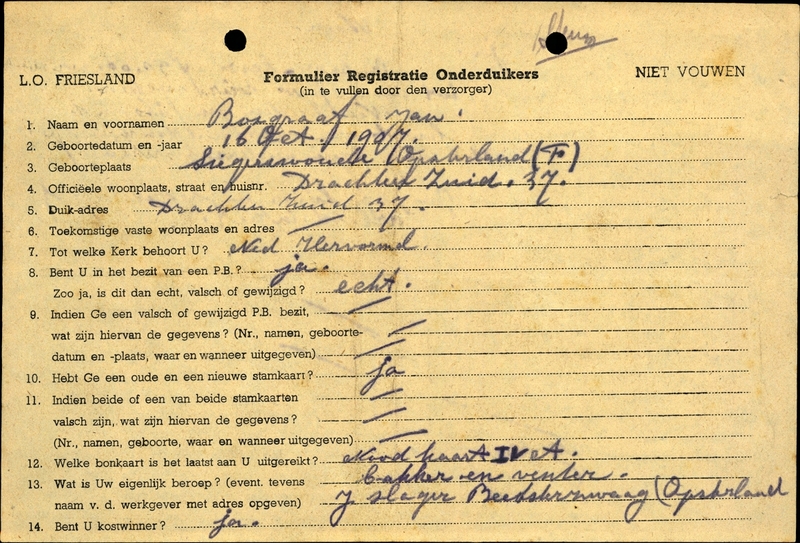 L.O. FRIESLAND
Formulier Registratie Onderduikers
NIET VOUWEN
(in te vullen door den verzorger)
1. Naam en voornamen Bosgraaf Jan.
2. Geboortedatum en -jaar 16 Oct. 1907.
3. Geboorteplaats Siegerswoude (Opsterland (F)
4. Officiëele woonplaats, straat en huisnr. Drachten Zuid. 37.
5. Duik-adres Drachten Zuid 37.
6. Toekomstige vaste woonplaats en adres /
7. Tot welke Kerk behoort U? Ned Hervormd.
8. Bent U in het bezit van een P.B.? ja.
Zoo ja, is dit dan echt, valsch of gewijzigd? echt.
9. Indien Ge een valsch of gewijzigd P.B. bezit, /
wat zijn hiervan de gegevens? (Nr., namen, geboorte- /
datum en -plaats, waar en wanneer uitgegeven) /
10. Hebt Ge een oude en een nieuwe stamkaart? ja
11. Indien beide of een van beide stamkaarten /
valsch zijn, wat zijn hiervan de gegevens? /
(Nr., namen, geboorte, waar en wanneer uitgegeven) /
12. Welke bonkaart is het laatst aan U uitgereikt? Nood kaart IV A.
13. Wat is Uw eigenlijk beroep? (event. tevens bakker en venter.
naam v. d. werkgever met adres opgeven) J slager Beetsterzwaag (Opsterland
14. Bent U kostwinner? ja.